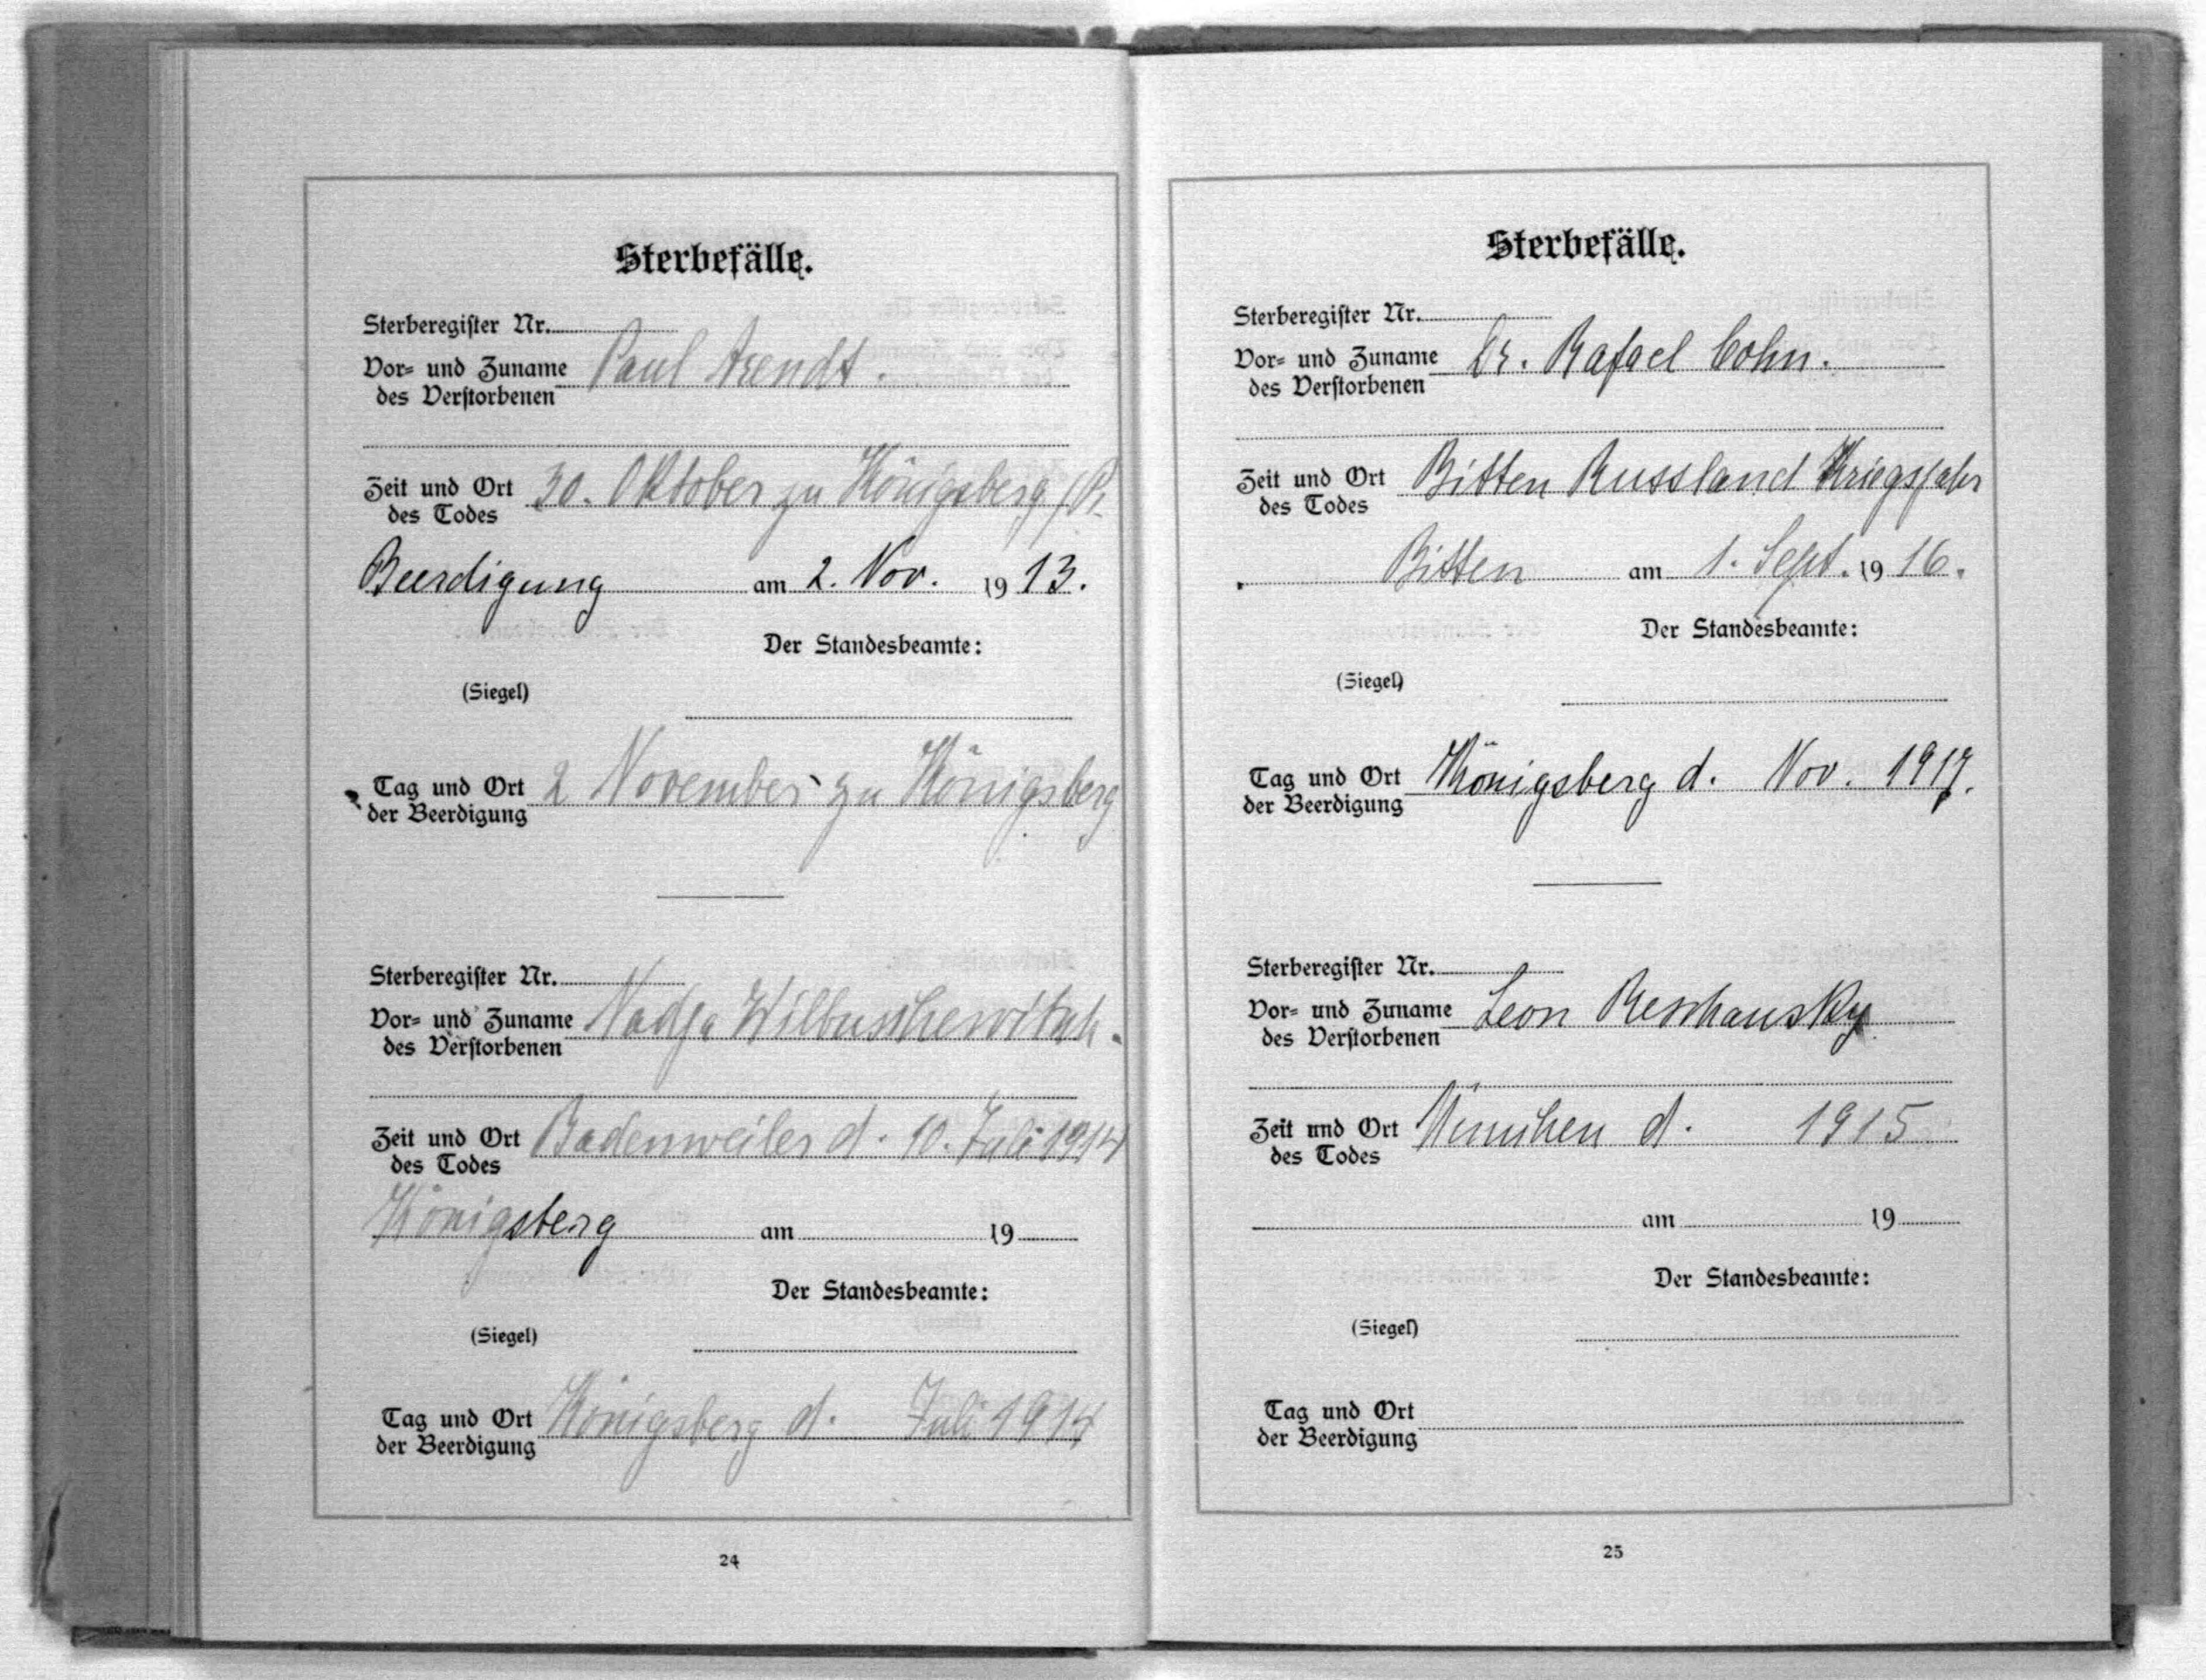 Sterbefälle.
Sterberegister Nr.
Vor- und Zuname des Verstorbenen Paul Arendt.
Zeit und Ort des Todes 30. Oktober zu Königsberg/Pr.
Beerdigung am 2. Nov. 1913.
Der Standesbeamte:
(Siegel)
Tag und Ort der Beerdigung 2 November zu Königsberg
Sterberegister Nr.
Vor- und Zuname des Verstorbenen Nadja Wilbuschewitsch.
Zeit und Ort des Todes Badenweiler d. 10. Juli 1914
Königsberg am 19
Der Standesbeamte:
(Siegel)
Tag und Ort der Beerdigung Königsberg d. Juli 1914
24
Sterbefälle.
Sterberegister Nr.
Vor- und Zuname des Verstorbenen Dr. Rafael Cohn.
Zeit und Ort des Todes Bitten Russland Kriegsjahr
Bitten am 1. Sept. 1916.
Der Standesbeamte:
(Siegel)
Tag und Ort der Beerdigung Königsberg d. Nov. 1917.
Sterberegister Nr.
Vor- und Zuname des Verstorbenen Leon Reschansky
Zeit und Ort des Todes München d. 1915
am 19
Der Standesbeamte:
(Siegel)
Tag und Ort der Beerdigung
25